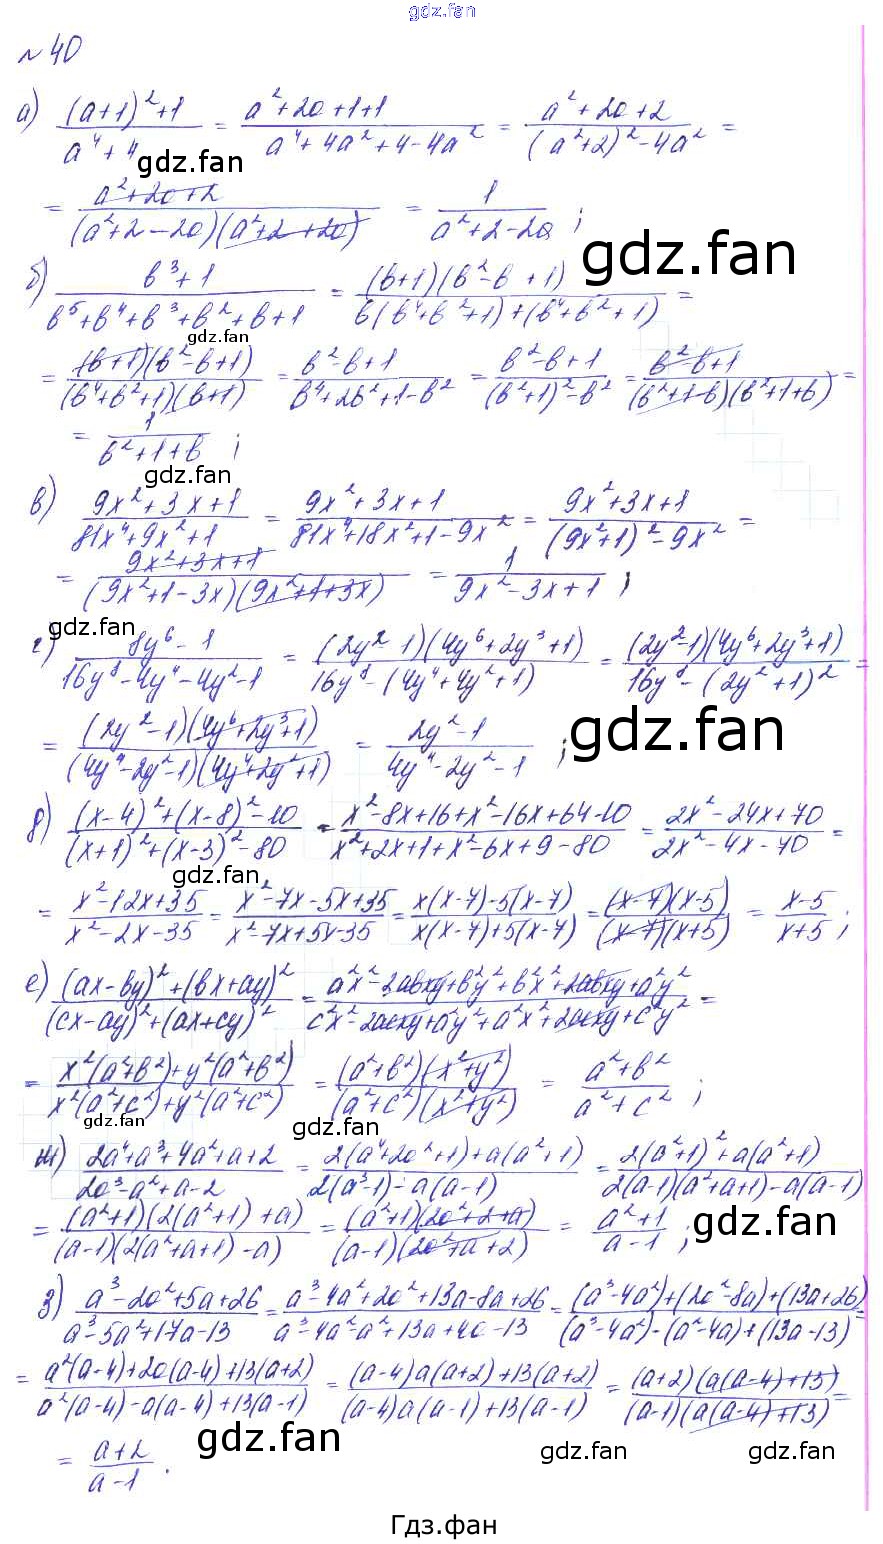 gdz.fan
№40
а) ((a+1)²+1)/(a⁴+4) = (a²+2a+1+1)/(a⁴+4a²+4-4a²) = (a²+2a+2)/((a²+2)²-4a²) =
gdz.fan
= (a²+2a+2)/((a²+2-2a)(a²+2+2a)) = 1/(a²+2-2a) ;
gdz.fan
б) (b³+1)/(b⁵+b⁴+b³+b²+b+1) = ((b+1)(b²-b+1))/(b(b⁴+b²+1)+(b⁴+b²+1)) =
gdz.fan
= ((b+1)(b²-b+1))/((b⁴+b²+1)(b+1)) = (b²-b+1)/(b⁴+2b²+1-b²) = (b²-b+1)/((b²+1)²-b²) = (b²-b+1)/((b²+1-b)(b²+1+b)) =
= 1/(b²+1+b) ;
gdz.fan
в) (9x²+3x+1)/(81x⁴+9x²+1) = (9x²+3x+1)/(81x⁴+18x²+1-9x²) = (9x²+3x+1)/((9x²+1)²-9x²) =
= (9x²+3x+1)/((9x²+1-3x)(9x²+1+3x)) = 1/(9x²-3x+1) ;
gdz.fan
г) (8y⁶-1)/(16y⁸-4y⁴-4y²-1) = ((2y²-1)(4y⁶+2y³+1))/(16y⁸-(4y⁴+4y²+1)) = ((2y²-1)(4y⁶+2y³+1))/(16y⁸-(2y²+1)²) =
gdz.fan
= ((2y²-1)(4y⁶+2y³+1))/((4y⁴-2y²-1)(4y⁴+2y²+1)) = (2y²-1)/(4y⁴-2y²-1) ;
д) ((x-4)²+(x-8)²-10)/((x+1)²+(x-3)²-80) = (x²-8x+16+x²-16x+64-10)/(x²+2x+1+x²-6x+9-80) = (2x²-24x+70)/(2x²-4x-70) =
gdz.fan
= (x²-12x+35)/(x²-2x-35) = (x²-7x-5x+35)/(x²-7x+5x-35) = (x(x-7)-5(x-7))/(x(x-7)+5(x-7)) = ((x-7)(x-5))/((x-7)(x+5)) = (x-5)/(x+5) ;
е) ((ax-by)²+(bx+ay)²)/((cx-ay)²+(ax+cy)²) = (a²x²-2abxy+b²y²+b²x²+2abxy+a²y²)/(c²x²-2acxy+a²y²+a²x²+2acxy+c²y²) =
= (x²(a²+b²)+y²(a²+b²))/(x²(a²+c²)+y²(a²+c²)) = ((a²+b²)(x²+y²))/((a²+c²)(x²+y²)) = (a²+b²)/(a²+c²) ;
gdz.fan
gdz.fan
ж) (2a⁴+a³+4a²+a+2)/(2a³-a²+a-2) = (2(a⁴+2a²+1)+a(a²+1))/(2(a³-1)-a(a-1)) = (2(a²+1)²+a(a²+1))/(2(a-1)(a²+a+1)-a(a-1))
= ((a²+1)(2(a²+1)+a))/((a-1)(2(a²+a+1)-a)) = ((a²+1)(2a²+2+a))/((a-1)(2a²+a+2)) = (a²+1)/(a-1) ;
gdz.fan
з) (a³-2a²+5a+26)/(a³-5a²+17a-13) = (a³-4a²+2a²+13a-8a+26)/(a³-4a²-a²+13a+4a-13) = ((a³-4a²)+(2a²-8a)+(13a+26))/((a³-4a²)-(a²-4a)+(13a-13)) =
= (a²(a-4)+2a(a-4)+13(a+2))/(a²(a-4)-a(a-4)+13(a-1)) = ((a-4)a(a+2)+13(a+2))/((a-4)a(a-1)+13(a-1)) = ((a+2)(a(a-4)+13))/((a-1)(a(a-4)+13)) =
gdz.fan
gdz.fan
gdz.fan
= (a+2)/(a-1) .
Гдз.фан